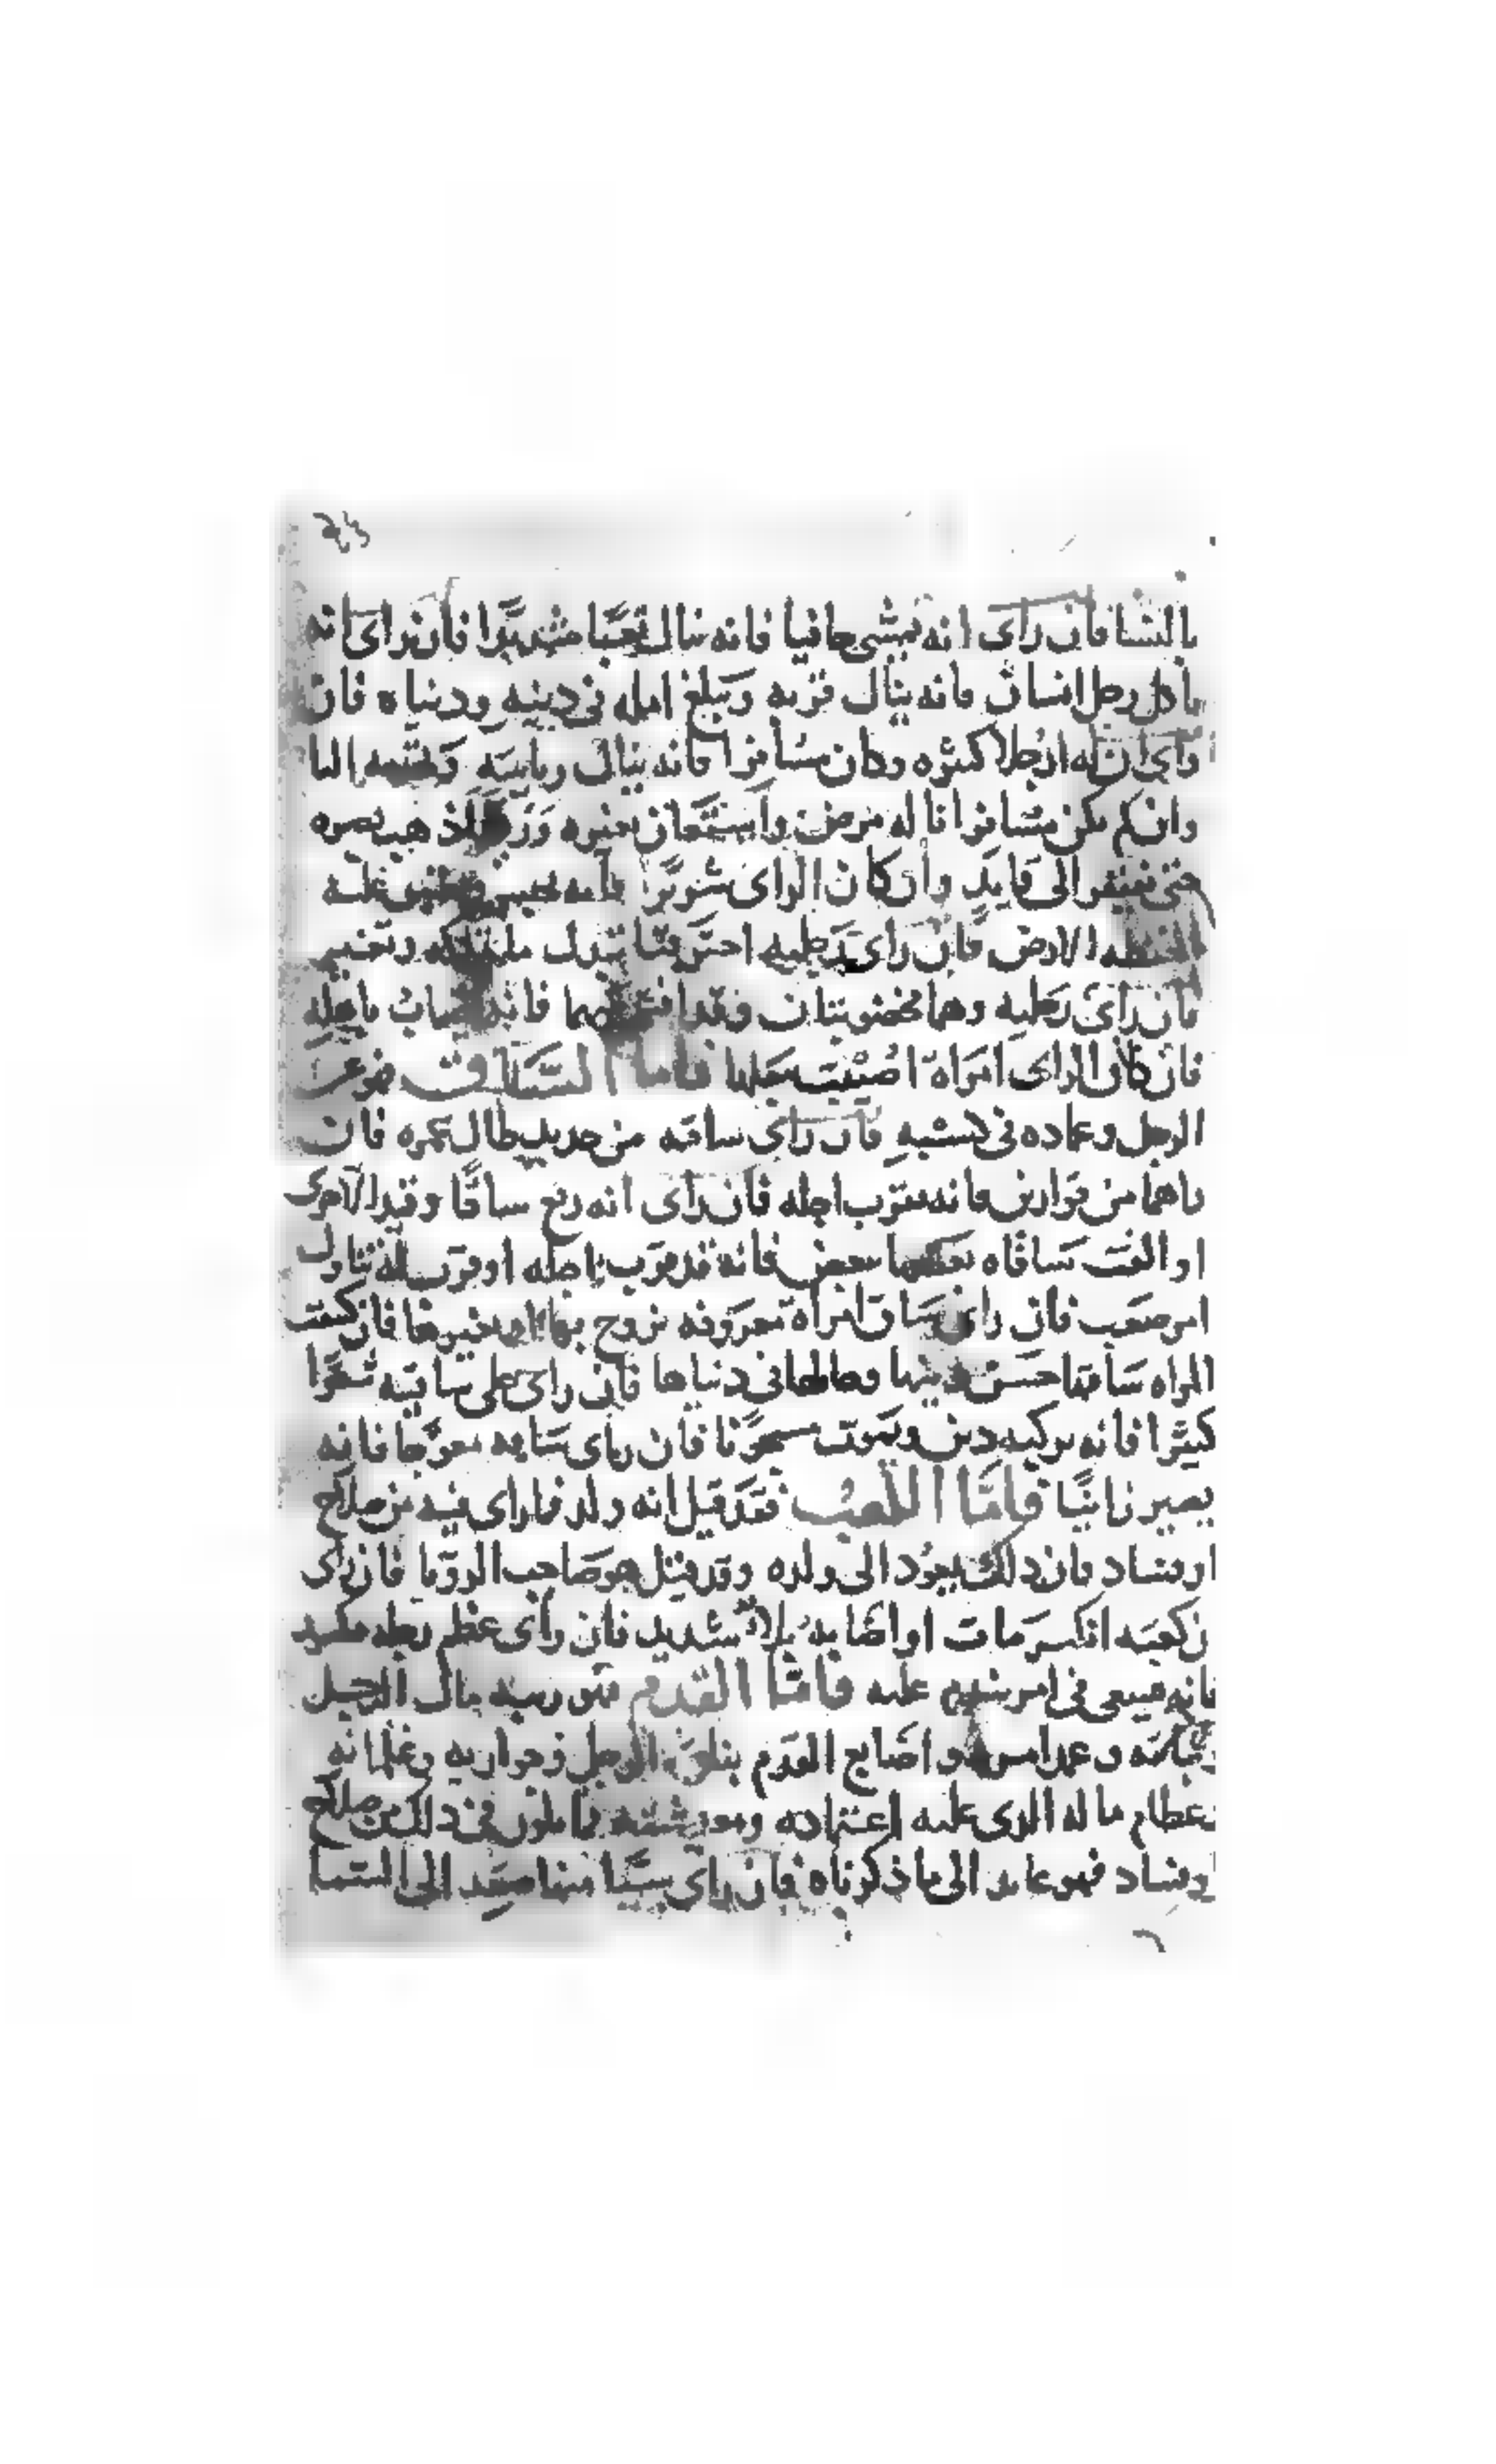 بالنسا فان راى انه يمشى حافيا فانه ينال تعبا شديدا فان راى انه
ياكل رجل انسان فانه ينال قربه ويبلغ امله فى دينه ودنياه فان
راى ان له ارجلا كثيره وكان مسافرا فانه ينال
وان لم يكن مسافرا ناله مرض واستعان بغيره ذهب بصره
حتى يفتقر الى قايد وان كان الراى شريرا عليه
الارض فان راى رجليه احترقتا
فان راى رجليه وهما مخضوبتان فانه يصاب باهله
فان كان الراى امراه اصيبت ببعلها فاما الساق فهو عمر
الرجل وعماده فى كسبه فان راى ساقه من حديد طال عمره فان
راهما من قوارير فانه يقرب اجله فان راى انه رفع ساقا وقدم الاخرى
او التفت ساقاه بعضها ببعض فانه قد قرب اجله او قرب لقا
امر صعب فان راى ساق امراه معروفه تزوج بها او بغيرها فان كشفت
المراه ساقها حسن دينها وحالها فى دنياها فان راى على ساقيه شعرا
كثيرا فانه يركبه دين ويموت مسجونا فان راى ساقه معوجا فانه
يصير زانيا فاما الكعب فقد قيل انه ولد فما راى فيه من صلاح
او فساد فان ذلك يعود الى ولده وقد قيل هو صاحب الرويا فان راى
ان كعبه انكسر مات او اصابه بلاء شديد فان راى عظم رجله
فانه يسعى فى امر يندم عليه فاما القدم فهو زينه مال الرجل
و اصابع القدم الرجل وجواريه وغلمانه
وعظام ماله الذى عليه اعتماده ومعيشته فما يكون فى ذلك من صلاح
او فساد فهو عايد الى ما ذكرناه فان راى شيا منها صعد الى السما